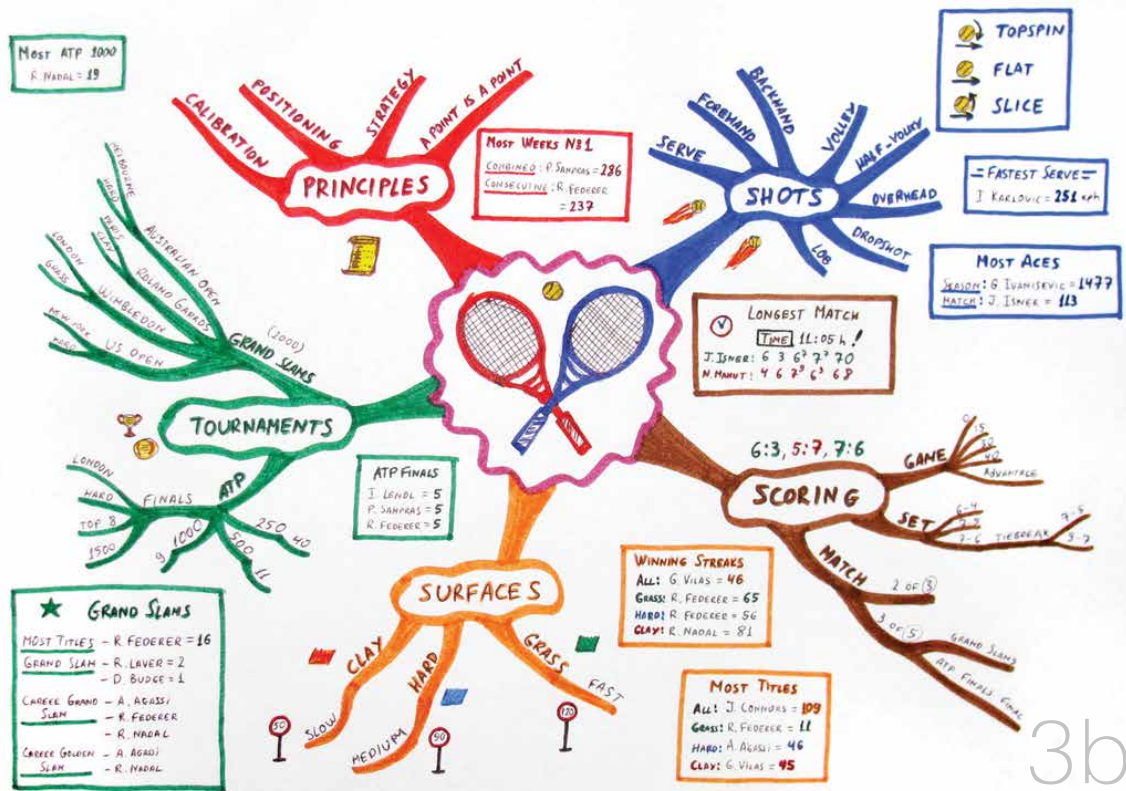 MOST ATP 1000
R. NADAL = 19
PRINCIPLES
CALIBRATION
POSITIONING
STRATEGY
A POINT IS A POINT
MOST WEEKS N°1
COMBINED: P. SAMPRAS = 286
CONSECUTIVE: R. FEDERER
= 237
SHOTS
SERVE
FOREHAND
BACKHAND
VOLLEY
HALF-VOLLEY
OVERHEAD
DROPSHOT
LOB
TOPSPIN
FLAT
SLICE
FASTEST SERVE
I. KARLOVIC = 251 kph
MOST ACES
SEASON: G. IVANISEVIC = 1477
MATCH: J. ISNER = 113
LONGEST MATCH
TIME 11:05 h!
J. ISNER: 6 3 6⁷ 7⁷ 70
N. MAHUT: 4 6 7⁹ 6³ 68
TOURNAMENTS
GRAND SLAMS
(2000)
AUSTRALIAN OPEN
MELBOURNE
HARD
ROLAND GARROS
PARIS
CLAY
WIMBLEDON
LONDON
GRASS
US OPEN
NEW YORK
HARD
ATP
FINALS
LONDON
HARD
TOP 8
1500
1000
9
500
11
250
40
ATP FINALS
I. LENDL = 5
P. SAMPRAS = 5
R. FEDERER = 5
6:3, 5:7, 7:6
SCORING
GAME
0
15
30
40
ADVANTAGE
SET
6-4
7-6
TIEBREAK
7-5
9-7
MATCH
2 OF 3
3 OF 5
GRAND SLAMS
ATP FINALS FINAL
SURFACES
CLAY
SLOW
50
HARD
MEDIUM
90
GRASS
FAST
120
WINNING STREAKS
ALL: G. VILAS = 46
GRASS: R. FEDERER = 65
HARD: R. FEDERER = 56
CLAY: R. NADAL = 81
MOST TITLES
ALL: J. CONNORS = 109
GRASS: R. FEDERER = 11
HARD: A. AGASSI = 46
CLAY: G. VILAS = 45
GRAND SLAMS
MOST TITLES - R. FEDERER = 16
GRAND SLAM - R. LAVER = 2
- D. BUDGE = 1
CAREER GRAND SLAM - A. AGASSI
- R. FEDERER
- R. NADAL
CAREER GOLDEN SLAM - A. AGASSI
- R. NADAL
3b